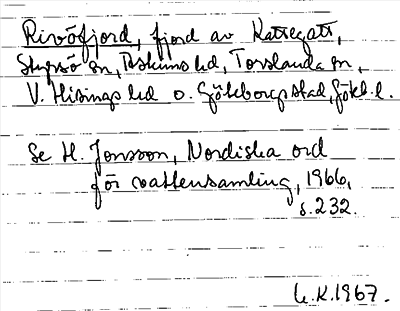 Rivöfjord, fjord av Kattegatt,
Styrsö sn, Askims hd, Torslanda sn,
V. Hisings hd o. Göteborgs stad, Gbl. l.
Se H. Jonsson, Nordiska ord
för vattensamling, 1966,
s. 232.
K. 1967.